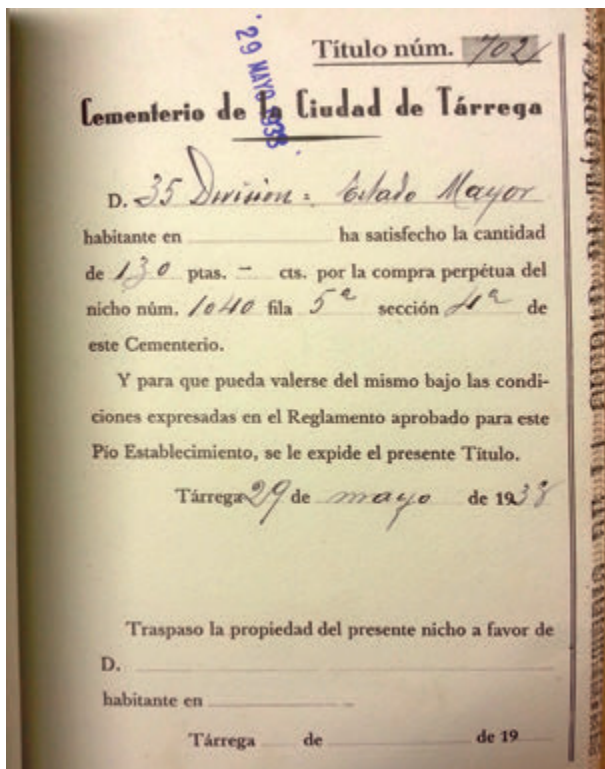 Título núm. 702
29 MAYO 1938
Cementerio de la Ciudad de Tárrega
D. 35 Division = Estado Mayor
habitante en ha satisfecho la cantidad
de 130 ptas. - cts. por la compra perpétua del
nicho núm. 1040 fila 5ª sección 4ª de
este Cementerio.
Y para que pueda valerse del mismo bajo las condi-
ciones expresadas en el Reglamento aprobado para este
Pío Establecimiento, se le expide el presente Título.
Tárrega 29 de mayo de 1938
Traspaso la propiedad del presente nicho a favor de
D.
habitante en
Tárrega de de 19